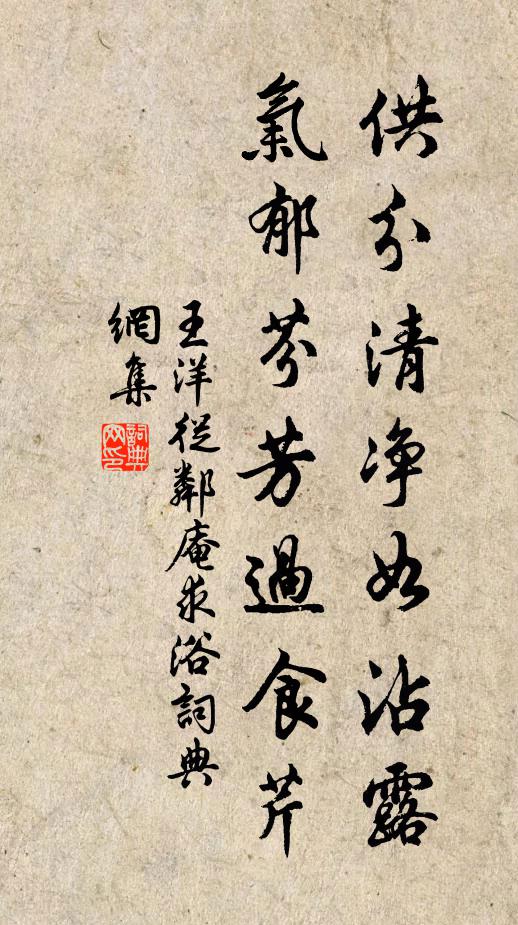 供分清净如沾露
氣郁芬芳過食芹
王洋從鄰庵求浴詞典
網集
詞典網印